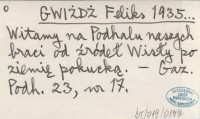 GWIŻDŻ Feliks 1935...
Witamy na Podhalu naszych
braci od źródeł Wisły po
ziemię pokucką. – Gaz.
Podh. 23, nr 17.